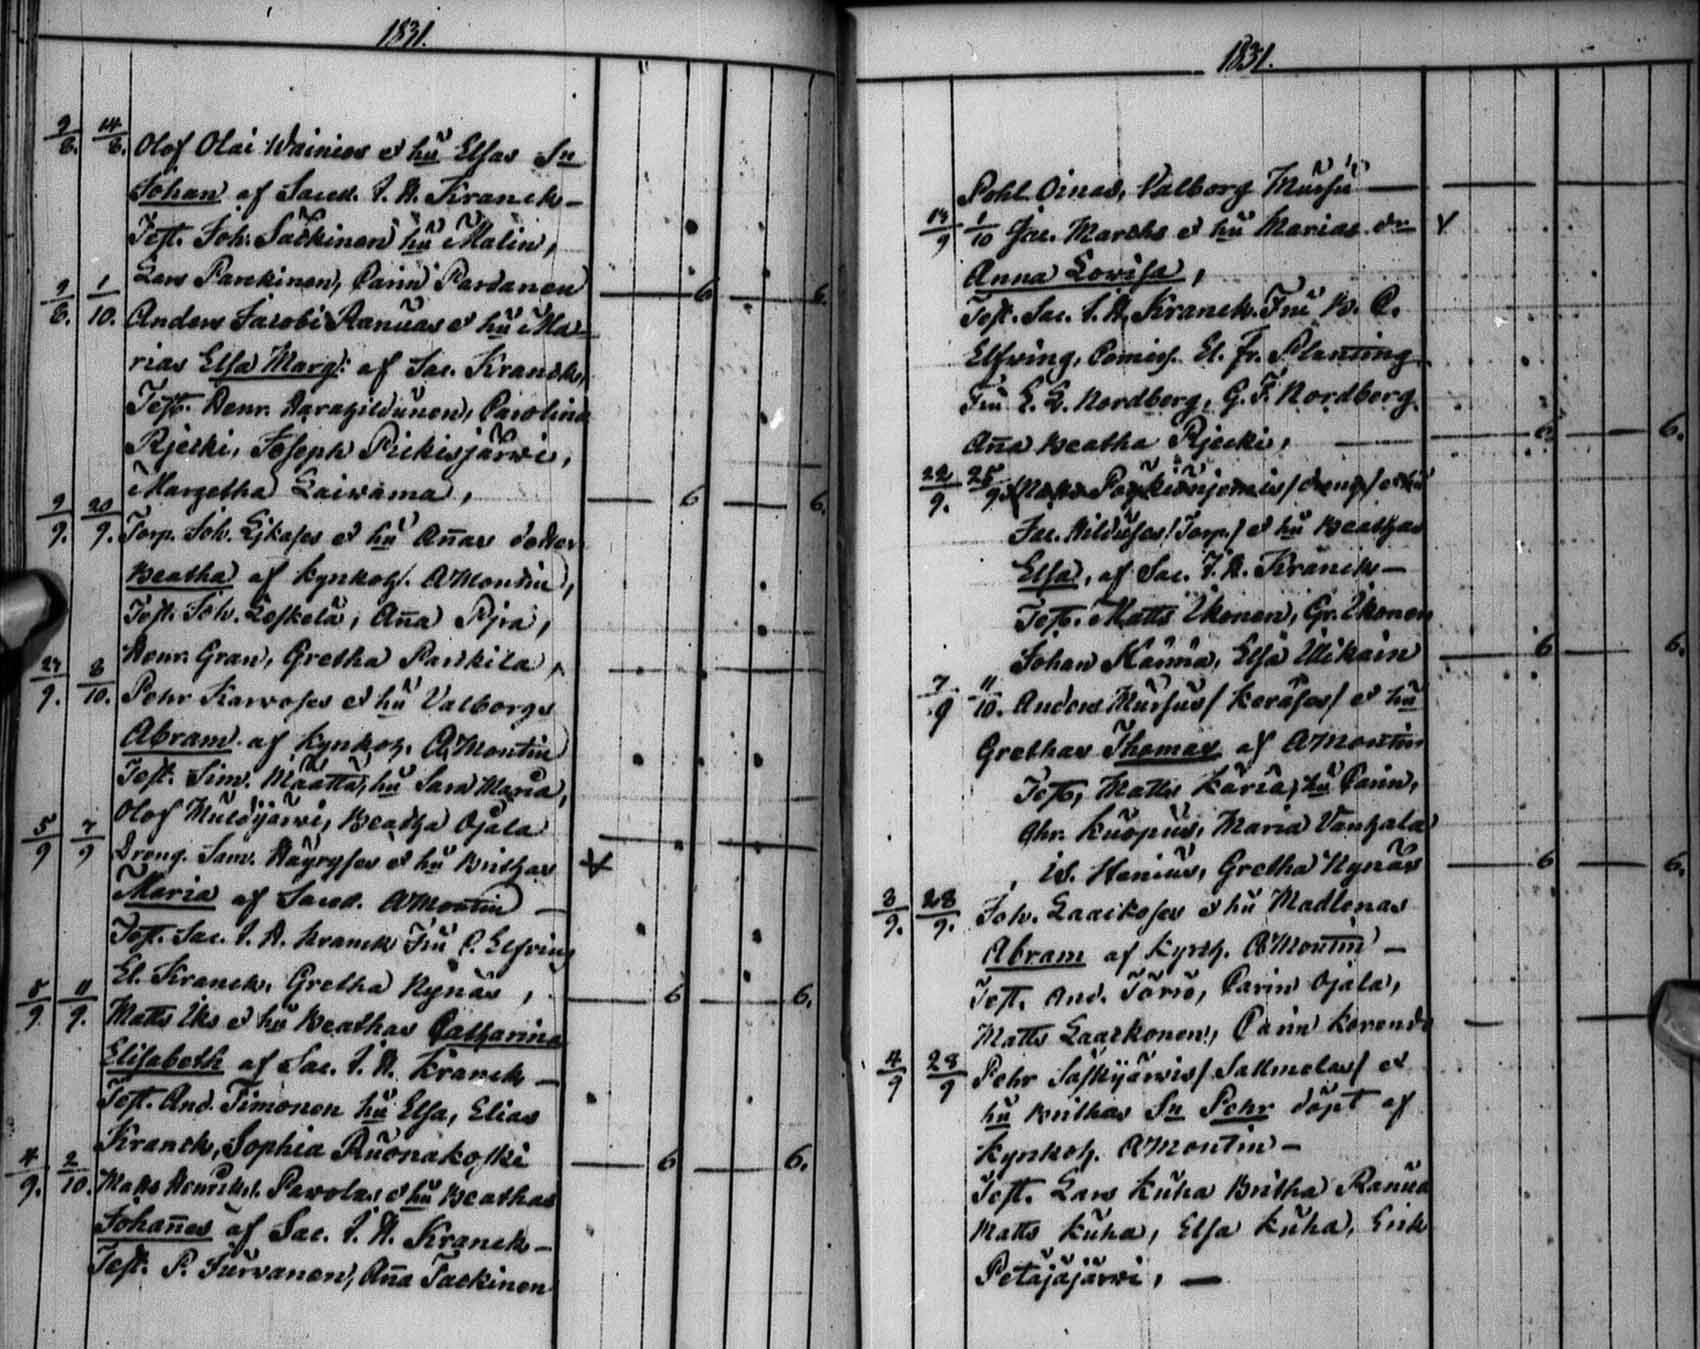 1831.
9/8. 14/8. Olof Olai Wainios et hu Elsas Sn
Johan af Sacd. J. H. Kranck –
Test. Joh. Säckinen hu Malin,
Lars Parckinen, Carin Pardanen
6 6.
9/8. 1/10. Anders Jacobi Ranuas et hu Ma-
rias Elsa Marg: af Sac. Kranck,
Test. Henr. Carolina
Rjecki, Joseph
Margetha Laiwama,
6 6.
9/9. 20/9. Torp. Joh. et hu Añas dotter
Beatha af Kynkoh. AMontin,
Test. Joh. Leskelä, Aña Pjra,
Henr. Gran, Gretha Parkila,
27/9. 8/10. Pehr Karvoses et hu Valborgs
Abram af Kynkoh. AMontin
Test. Sim. Määttä, hu Sara Maria,
Olof Muldijärwi, Beatha Ojala
5/9 7/9 Dreng. Sam. Häyryses et hu Brithas
Maria af Sacd. AMontin –
Test. Sac. J. H. Kranck Fru C. Elfving
El. Kranck, Gretha Nynäs,
6 6.
8/9. 11/9. Matts Uks et hu Beathas Catharina
Elisabeth af Sac. J. H. Kranck –
Test. And. Timonen hu Elsa, Elias
Kranck, Sophia Ruonakoski
6 6.
4/9. 2/10. Matts Henriks. Pavolas et hu Beathas
Johañes af Sac. J. H. Kranck –
Test. P. Turvanen, Aña Tackinen
1831.
Pohl. Oinas, Valborg Mursu
14/9 1/10 Jac. Marchs et hu Marias dr
Anna Lovisa,
Test. Sac. J. H. Kranck. Fru B. C.
Elfving, Comiss. El. Fr. Planting
Fru E. L. Nordberg, G. F. Nordberg
Aña Beatha Rjecki,
6 6.
22/9. 25/9.
Jac. /Torp./ et hu Beathas
Elsa, af Sac. J. H. Kranck –
Test. Matts Ukonen, Gr. Ukonen
Johan Elsa Ulikain
6 6.
7/9 11/10. Anders Mursus / Keräses / et hu
Grethas Thomas af AMontin
Test, Matts Käriä, hu Carin,
Chr. Kuopus, Maria Vanhala
Is. Hanius, Gretha Nynäs
6 6.
3/9. 28/9. Joh. Laackoses et hu Madlenas
Abram af Kyrkh. AMontin –
Test. And. Törrö, Carin Ojala,
Matts Laackonen, Carin
4/9 28/9 Pehr Säskijärwis / Sallmelas / et
hu Brithas Sn Pehr döpt af
Kyrkoh. AMontin –
Test. Lars Kuha Britha Ranua
Matts Kuha, Elsa Kuha, Erik
Petäjäjärwi, –